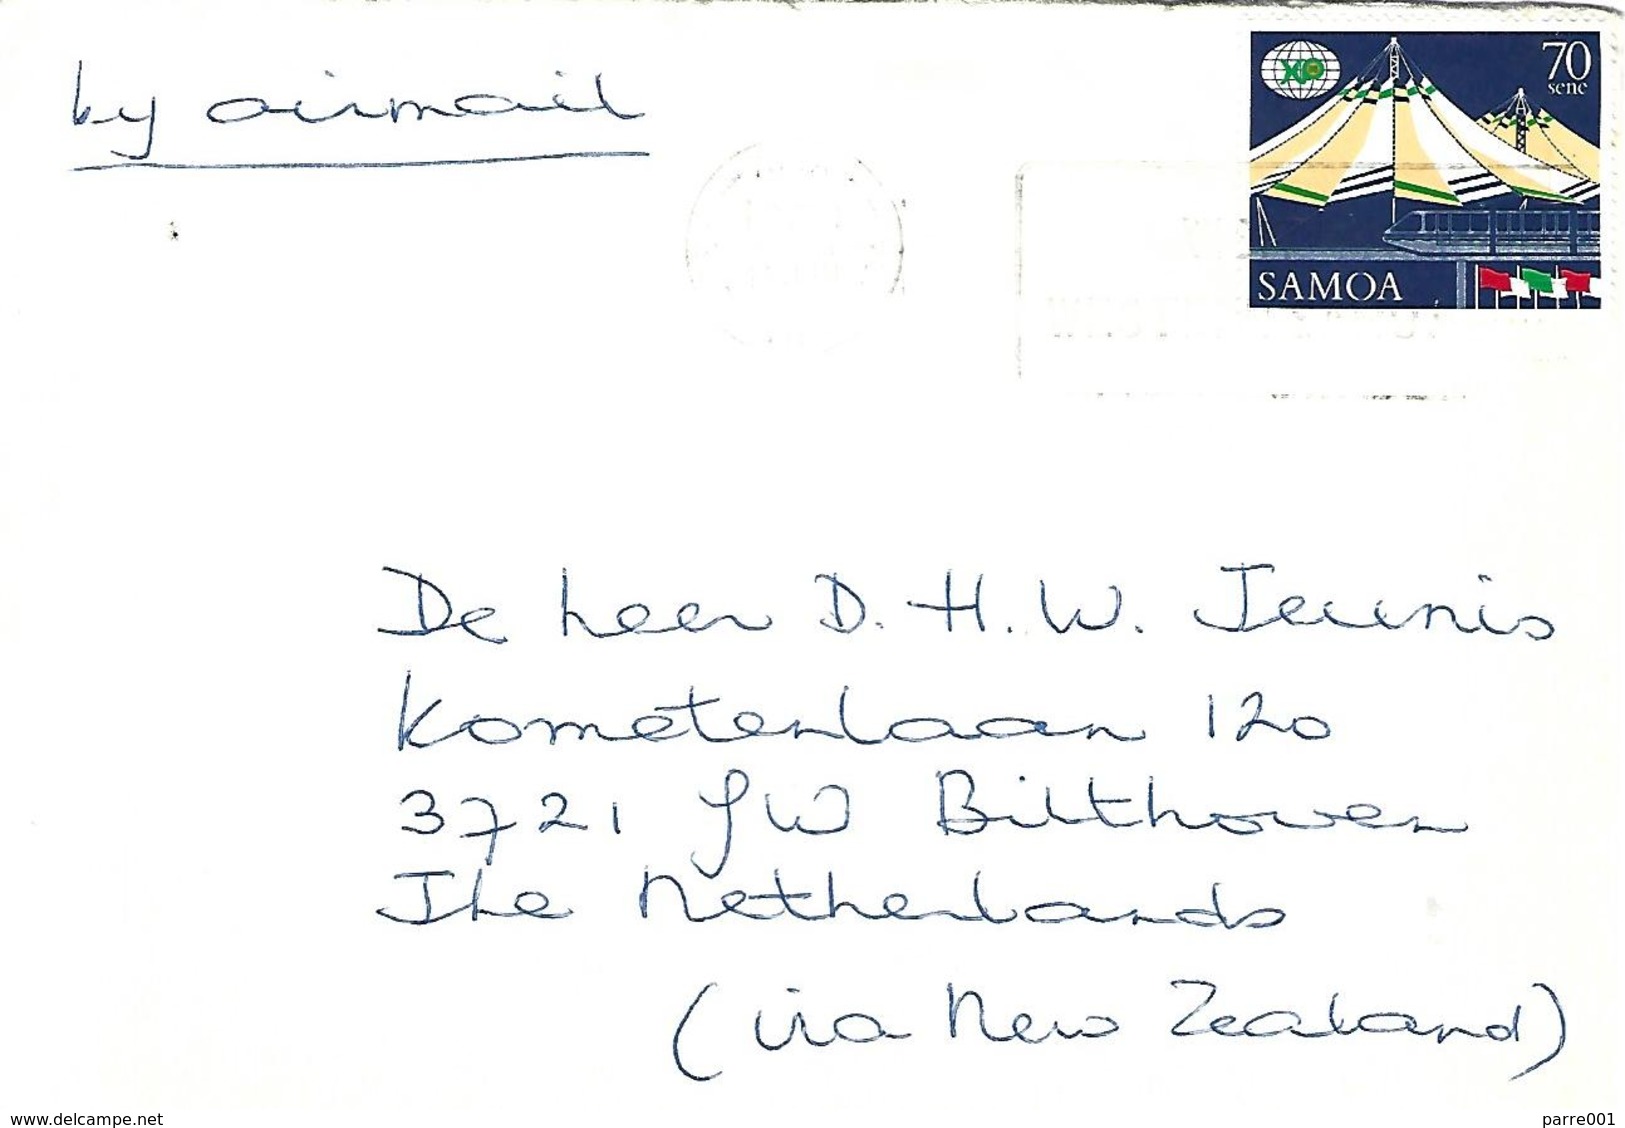 by airmail
70
sene
SAMOA
De heer D. H. W. Teunis
Kometenlaan 120
3721 JW Bilthoven
The Netherlands
(via New Zealand)
www.delcampe.net
parre001